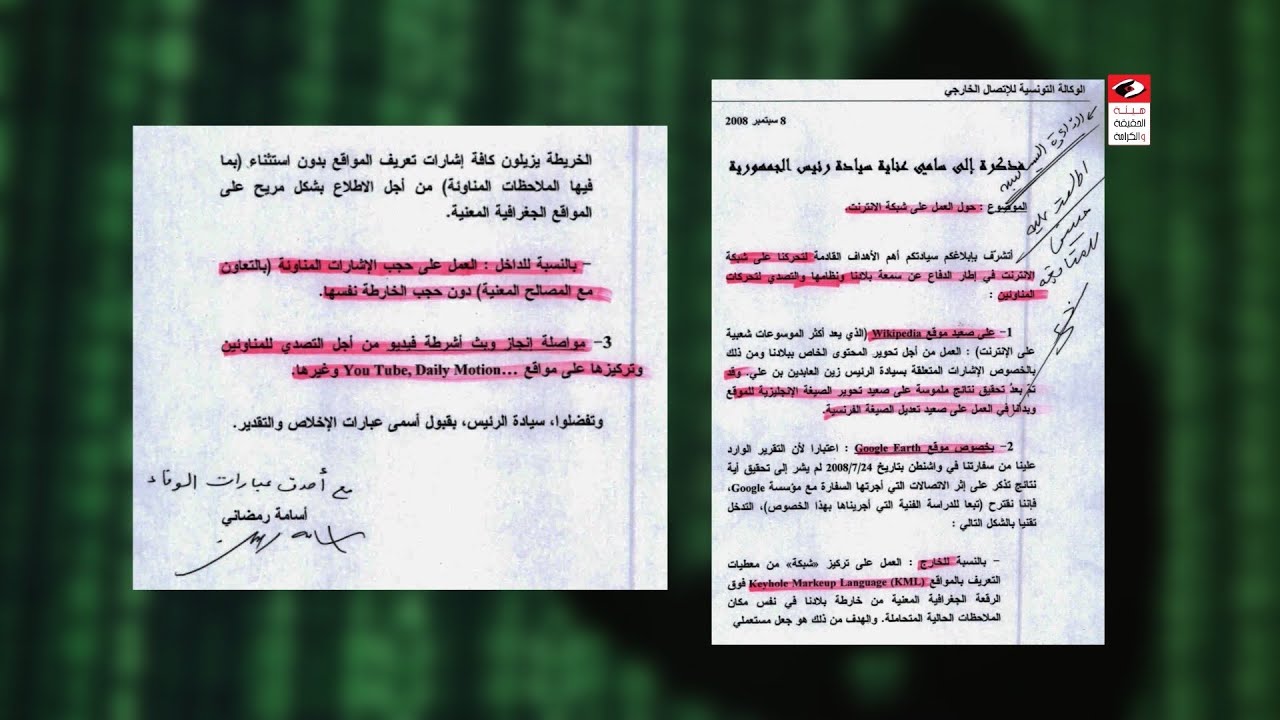 الوكالة التونسية للإتصال الخارجي
8 سبتمبر 2008
مذكرة إلى سامي عناية سيادة رئيس الجمهورية
الموضوع : حول العمل على شبكة الانترنت.
أتشرف بإبلاغكم سيادتكم أهم الأهداف القادمة لتحركنا على شبكة
الانترنت في إطار الدفاع عن سمعة بلادنا ونظامها والتصدي لتحركات
المناوئين :
1- على صعيد موقع Wikipedia (الذي يعد أكثر الموسوعات شعبية
على الإنترنت) : العمل من أجل تحوير المحتوى الخاص ببلادنا ومن ذلك
بالخصوص الإشارات المتعلقة بسيادة الرئيس زين العابدين بن علي. وقد
تم بعدُ تحقيق نتائج ملموسة على صعيد تحوير الصيغة الإنجليزية للموقع
وبدأنا في العمل على صعيد تعديل الصيغة الفرنسية.
2- بخصوص موقع Google Earth : اعتبارا لأن التقرير الوارد
علينا من سفارتنا في واشنطن بتاريخ 2008/7/24 لم يشر إلى تحقيق أية
نتائج تذكر على إثر الاتصالات التي أجرتها السفارة مع مؤسسة Google،
فإننا نقترح (تبعا للدراسة الفنية التي أجريناها بهذا الخصوص)، التدخل
تقنيا بالشكل التالي :
- بالنسبة للخارج : العمل على تركيز «شبكة» من معطيات
التعريف بالمواقع Keyhole Markeup Language (KML) فوق
الرقعة الجغرافية المعنية من خارطة بلادنا في نفس مكان
الملاحظات الحالية المتحاملة. والهدف من ذلك هو جعل مستعملي
الخريطة يزيلون كافة إشارات تعريف المواقع بدون استثناء (بما
فيها الملاحظات المناوئة) من أجل الاطلاع بشكل مريح على
المواقع الجغرافية المعنية.
- بالنسبة للداخل : العمل على حجب الإشارات المناوئة (بالتعاون
مع المصالح المعنية) دون حجب الخارطة نفسها.
3- مواصلة إنجاز وبث أشرطة فيديو من أجل التصدي للمناوئين
وتركيزها على مواقع You Tube, Daily Motion... وغيرها.
وتفضلوا، سيادة الرئيس، بقبول أسمى عبارات الإخلاص والتقدير.
مع أصدق عبارات الوفاء
أسامة رمضاني
هيئة
الحقيقة
والكرامة